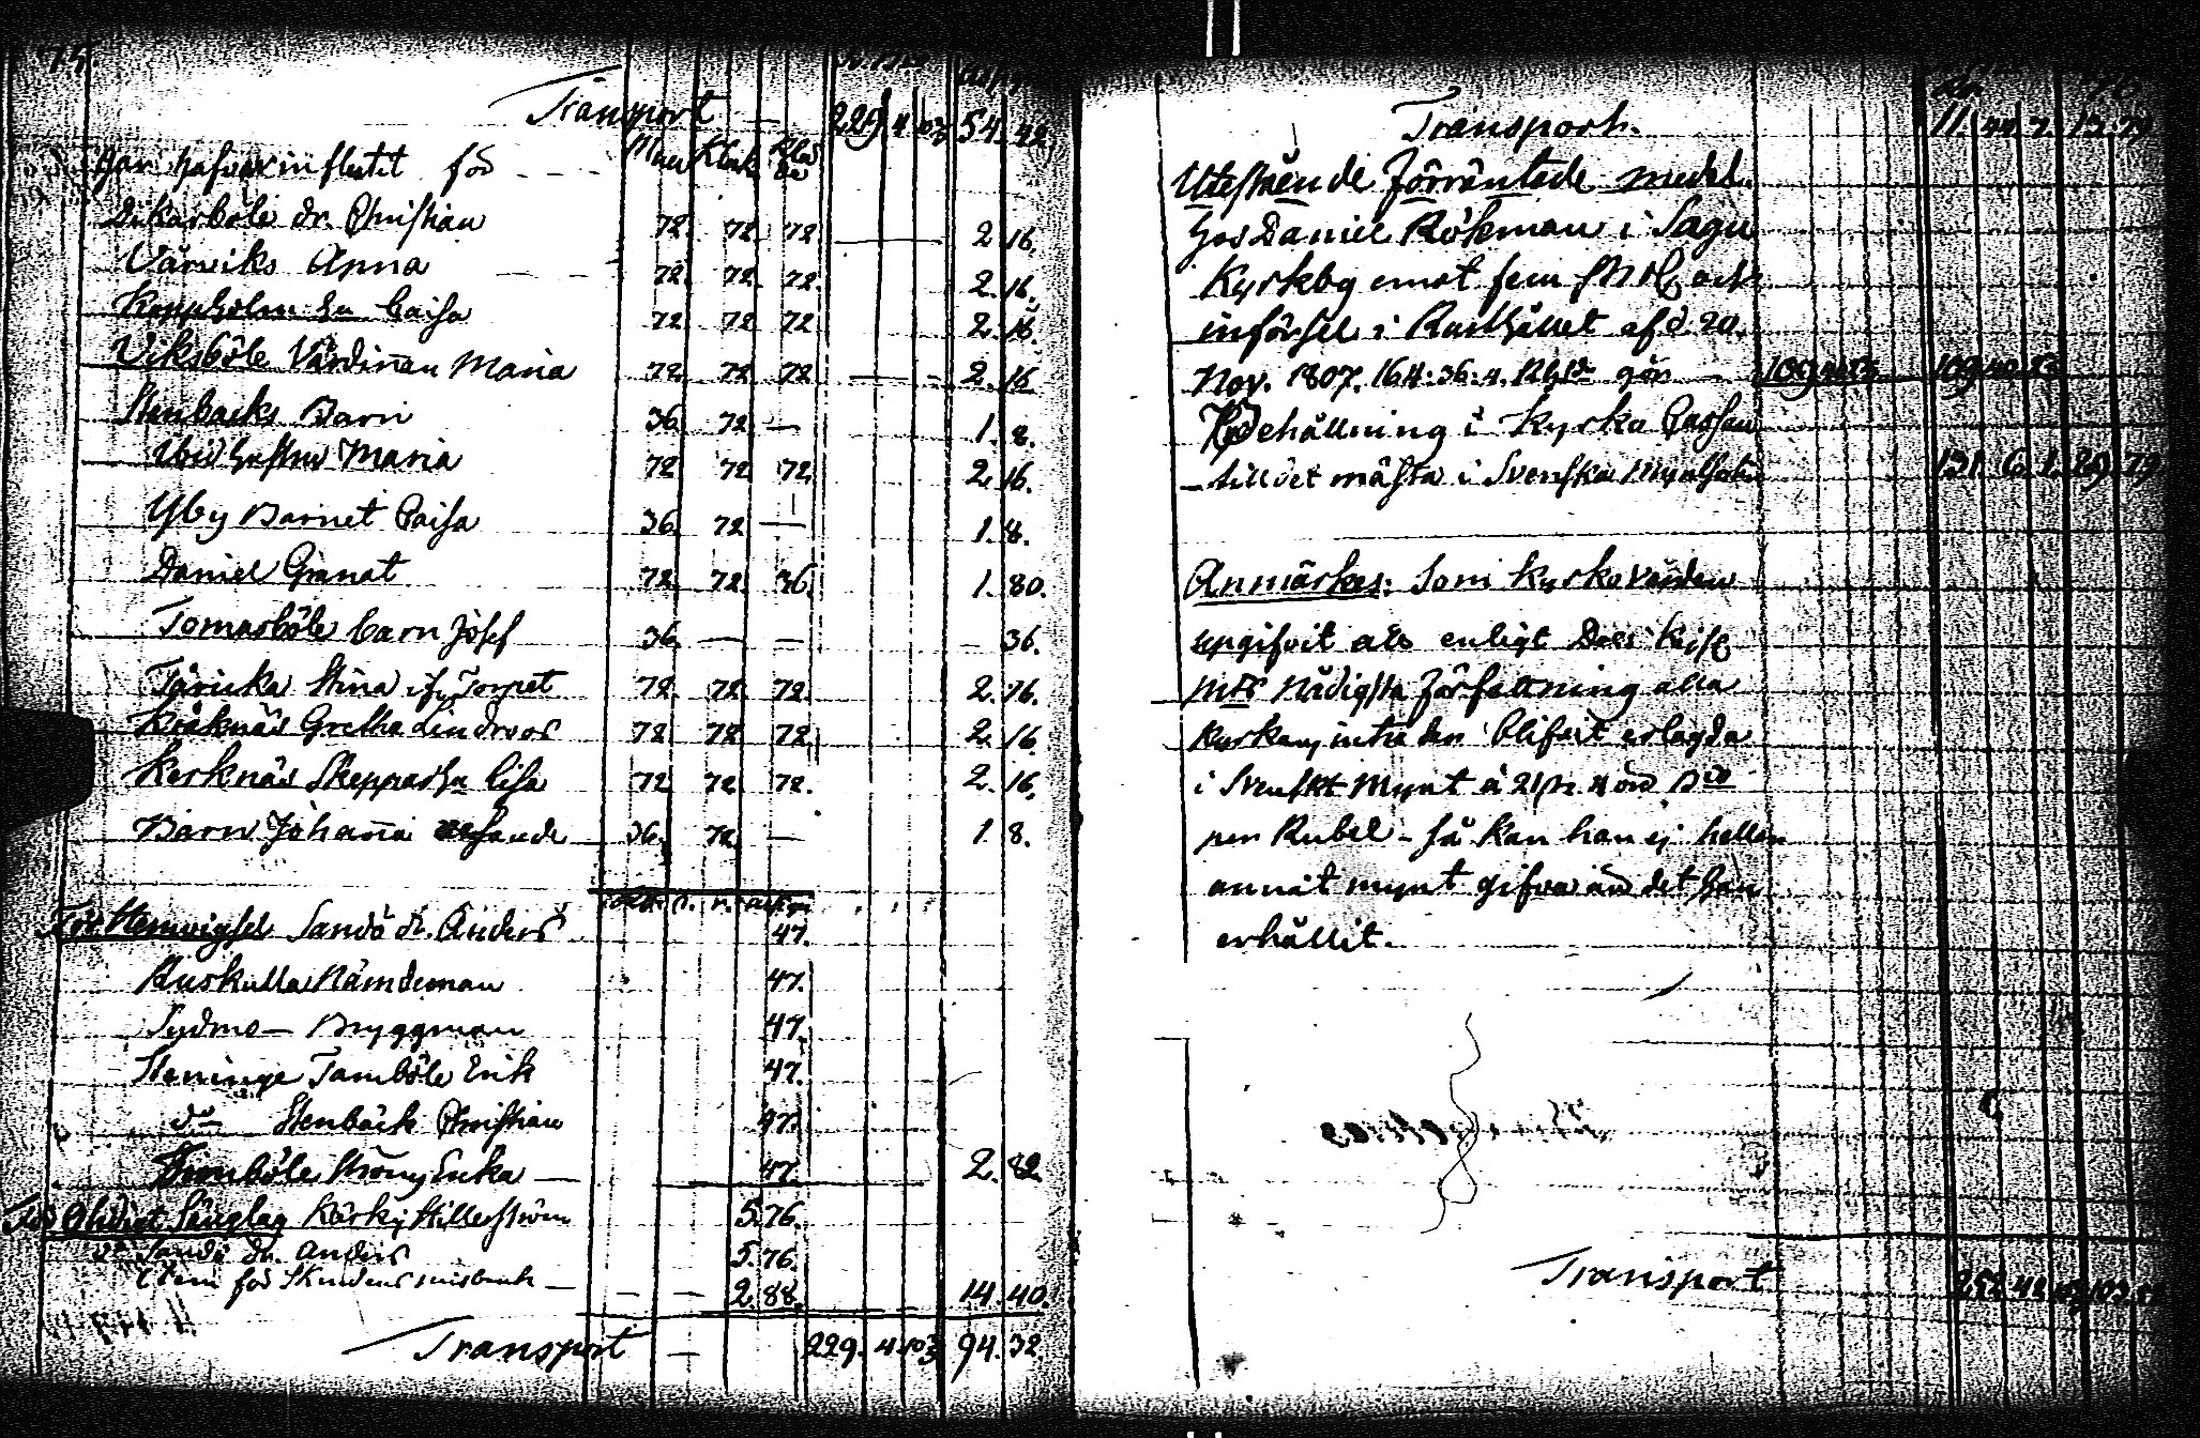 74.
Transport — 229. 4. 03 54. 42.
Här hafva influtit för Mull Klock Kläde
Dikarböle dr. Christian 72. 72. 72. 2. 16.
Särviks Anna 72. 72. 72. 2. 16.
Koppholm hu Caisa 72 72 72 2. 16.
Viksböle Värdinnan Maria 72 72 72 — 2. 16
Stenbacks Barn 36. 72. — 1. 8.
Ibid hustru Maria 72 72 72 2. 16.
Yby Barnet Caisa 36. 72 — 1. 8.
Daniel Granat 72. 72. 36. 1. 80.
Tomasböle barn Josef 36. — — 36.
Stina Torpet 72. 72. 72. 2. 16.
Kråknäs Gretha Lindroos 72 72 72 2. 16.
Kerknäs Skeppars hu Lisa 72 72 72. 2. 16.
Barn Johanna 36. 72. — 1. 8.
För Hemvigsel Sandö dr. Anders 47.
Ruskulla Nämdeman 47.
Sydmo — Bryggman 47.
Heninge Tamböle Erik 47.
do Stenbäck Christian 47.
Erika — 47. 2. 82
För Olidigt Sänglag Kärky Hillerström 5. 76.
do Sandö dr. Anders 5. 76.
Item för — — — 2. 88. 14. 40.
Transport — 229. 4. 03 94. 32.
Transport. 11. 44. 2. 13. 79
Utestående förräntade medel.
hos Daniel Rökman i Sagu
Kyrkby emot fem och
införsel i Rusthållet af d. 20.
Nov. 1807. 164: 36: 4. Rgld gör —
Behållning i Kyrko Cassan
– till det mästa i Svenska 131. 6. 1. 29. 79
Anmärkes: Som Kyrkovärden
upgifvit att enligt Dess Kejs
Mts Nådigsta Författning alla
Kyrkans inträden blifvit erlagda
i Svenskt Mynt à
per Rubel – så kan han ej heller
annat mynt gifva än det han
erhållit.
Transport